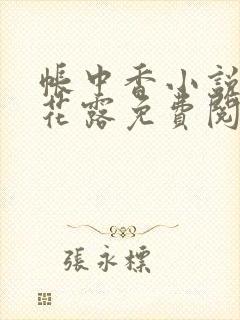 帳中香小說
花露免費閱
張永標